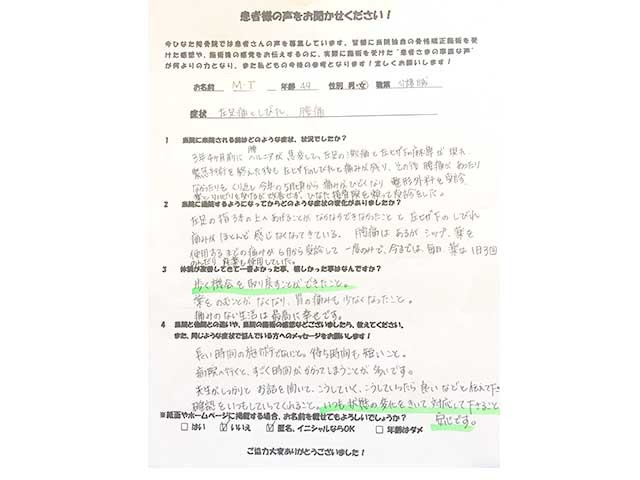 患者様の声をお聞かせください！
今ひなた接骨院では患者さんの声を募集しています。皆様に当院独自の骨格矯正施術を受
けた感想や、施術後の感覚をお伝えするのに、実際に施術を受けた"患者さまの率直な声"
が何よりの力となり、また私どもの今後の参考となります！宜しくお願いします！
お名前 M・T 年齢 49 性別 男・女 職業
症状 左足痛としびれ、腰痛
1 当院に来院される前はどのような症状、状況でしたか？
3年4ヶ月前に腰ヘルニアが悪変して、左足の激痛と左ヒザ下の麻痺が現れ
緊急手術を終えた後も左ヒザ下のしびれと痛みが残り、その後 腰痛があったり
なかったりをくり返し今年の5月頃から痛みがひどくなり整形外科を受診
ひなた接骨院を頼って受診をした。
2 当院に通院するようになってからどのような症状の変化がありましたか？
左足の指3本の上へあげることがなかなかできなかったことと左ヒザ下のしびれ
痛みがほとんど感じなくなってきている。腰痛はあるがシップ、薬を
使用するまでの痛みが6月から受診して一度のみで、今までは、毎日、薬は1日3回
のんだり、貼薬も使用していた。
3 体調が改善してきて一番よかった事、嬉しかった事はなんですか？
歩く機会を取り戻すことができたこと。
薬をのむことがなくなり、胃の痛みも少なくなったこと。
痛みのない生活は最高に幸せです。
4 当院と他院との違いや、当院の施術の感想などございましたら、教えてください。
また、同じような症状で悩んでいる方へのメッセージをお願いします！
長い時間の施術でないこと。待ち時間も短いこと。
病院へ行くと、すごく時間がかかってしまうことが多いです。
先生がしっかりとお話を聞いて、こうしていく、こうしていったら良いなどと伝えて下さり
確認をいつもしていってくれること。いつも状態の変化をきいて対応して下さること
安心です。
※紙面やホームページに掲載する場合、お名前を載せてもよろしいでしょうか？
□はい ☑いいえ □匿名、イニシャルならOK □年齢はダメ
ご協力大変ありがとうございました！